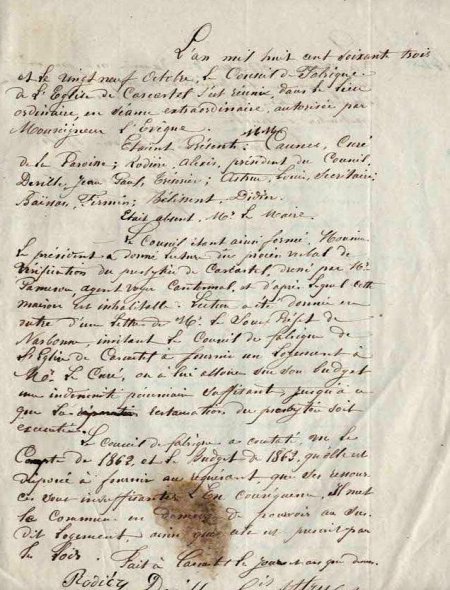 L'an mil huit cent soixante trois
et le vingt neuf octobre, Le Conseil de fabrique
de L'Eglise de Cascastel s'est réuni, dans le lieu
ordinaire, en séance extraordinaire, autorisée par
Monseigneur L'Evêque
Etaient Présents: M.M. Caunes, Curé
de la Paroisse; Rodière Alexis, président du Conseil,
Deville, Jean Paul, trésorier; Astruc, Louis, Secrétaire;
Baissas, Firmin; Didier.
Etait absent, Mr. Le Maire.
Le Conseil étant ainsi formé, Monsieur
Le président a donné lecture du procès verbal de
vérification du presbytère de Cascastel, dressé par Mr.
agent voyer Cantonal, et d'après lequel cette
maison est inhabitable: Lecture a été donnée en
outre d'une Lettre de Mr. Le Sous Préfet de
Narbonne, invitant Le Conseil de fabrique de
L'Eglise de Cascastel a fournir un logement à
Mr. Le Curé, ou a lui allouer sur son budget
une indemnité pécuniaire suffisante jusqu'à ce
que la restauration du presbytère soit
executée.
Le Conseil de fabrique a constaté, que Le
Compte de 1862, et le Budget de 1863, qu'elle est
disposée à fournir au requérant que ses ressour
ces sont insuffisantes. En conséquence, Il met
la Commune en demeure de pourvoir au sus
dit logement, ainsi que cela est prescrit par
les lois.
Fait à Cascastel le jour et an que dessus.
Deville